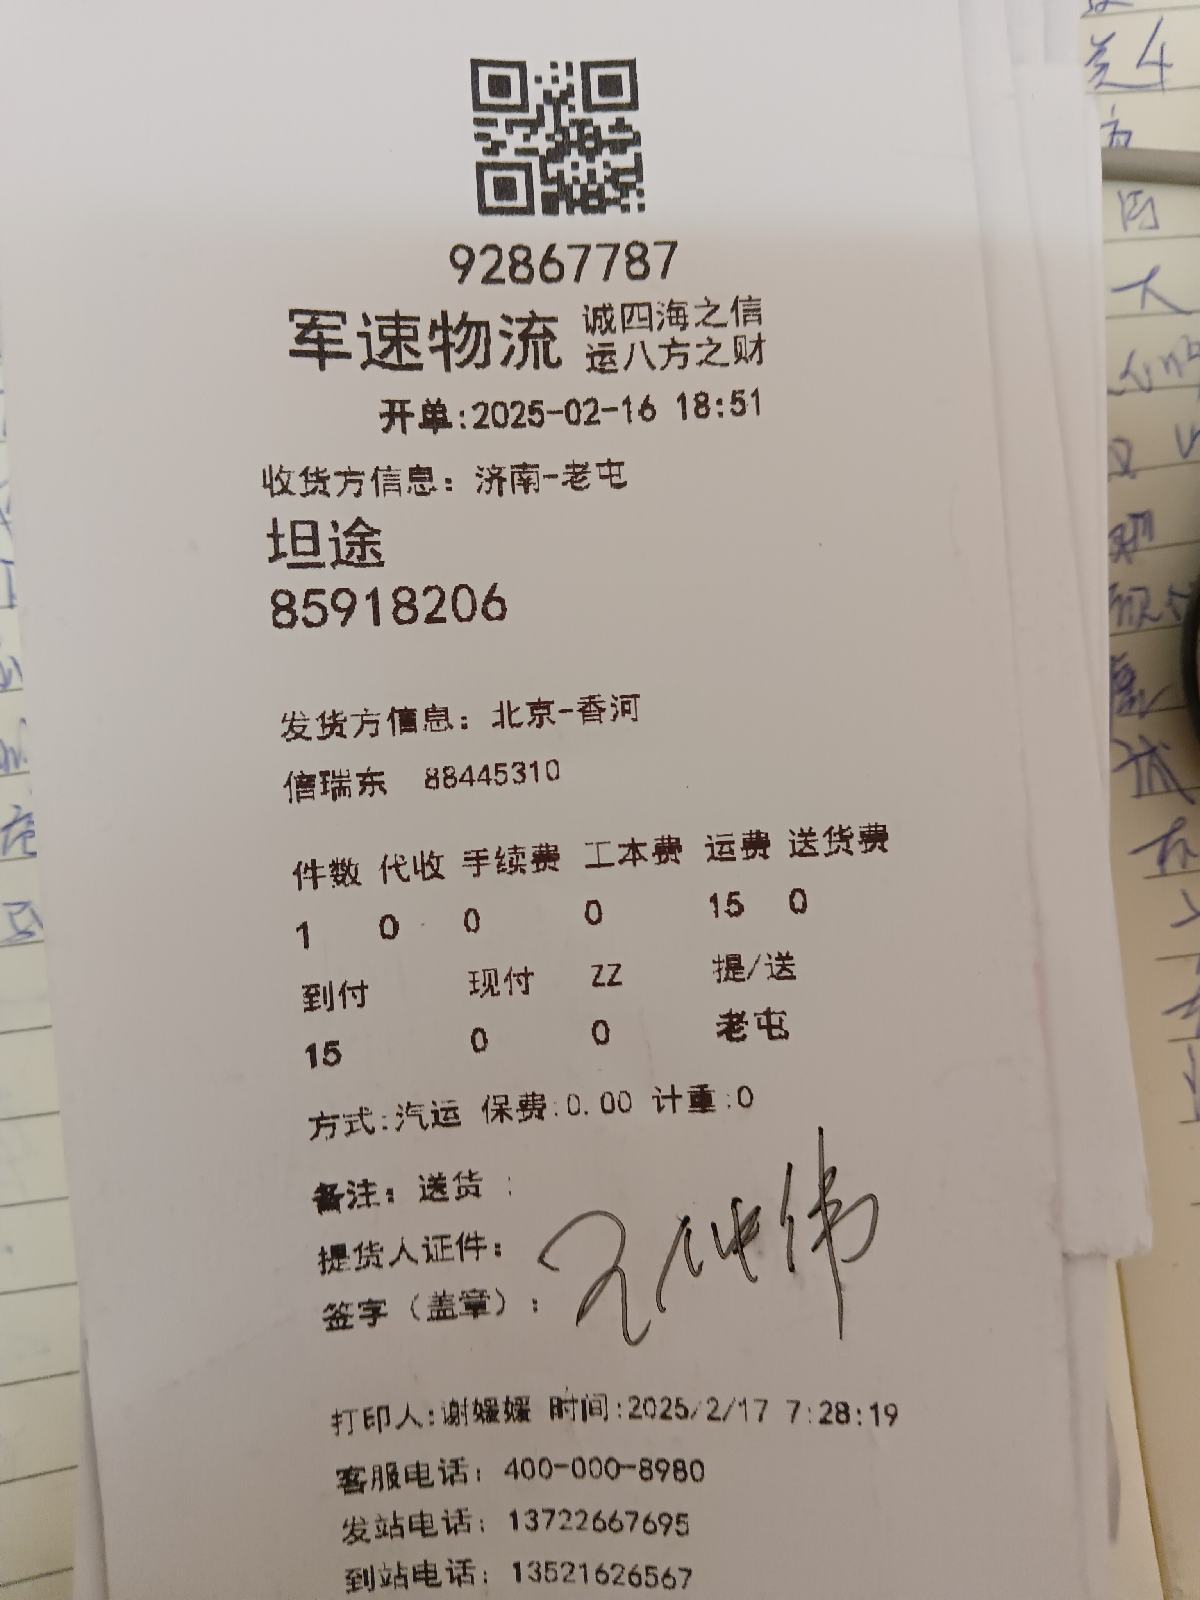 92867787
军速物流 诚四海之信
运八方之财
开单:2025-02-16 18:51
收货方信息: 济南-老屯
坦途
85918206
发货方信息: 北京-香河
信瑞东 88445310
件数 代收 手续费 工本费 运费 送货费
1 0 0 0 15 0
到付 现付 ZZ 提/送
15 0 0 老屯
方式:汽运 保费:0.00 计重:0
备注: 送货 :
提货人证件:
签字（盖章）:
打印人:谢媛媛 时间:2025/2/17 7:28:19
客服电话: 400-000-8980
发站电话: 13722667695
到站电话: 13521626567